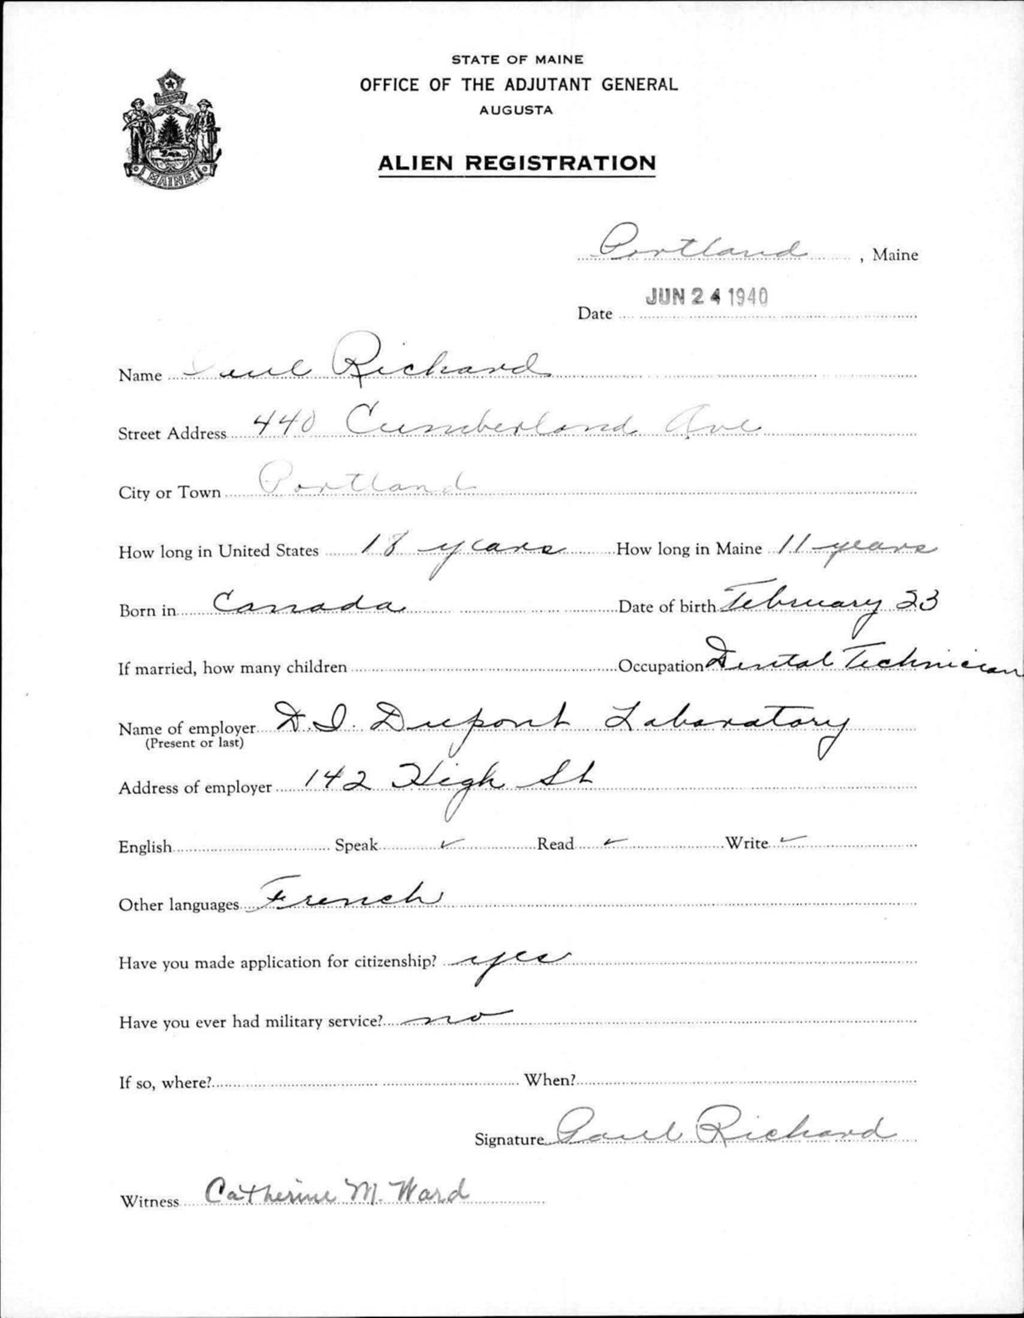 STATE OF MAINE
OFFICE OF THE ADJUTANT GENERAL
AUGUSTA
ALIEN REGISTRATION
MAINE
Portland, Maine
Date JUN 24 1940
Name Paul Richard
Street Address 440 Cumberland Ave
City or Town Portland
How long in United States 18 years How long in Maine 11 years
Born in Canada Date of birth February 23
If married, how many children Occupation Dental Technician
Name of employer D. I. Dupont Labaratory
(Present or last)
Address of employer 142 High St
English Speak ✓ Read ✓ Write ✓
Other languages French
Have you made application for citizenship? yes
Have you ever had military service? no
If so, where? When?
Signature Paul Richard
Witness Catherine M. Ward